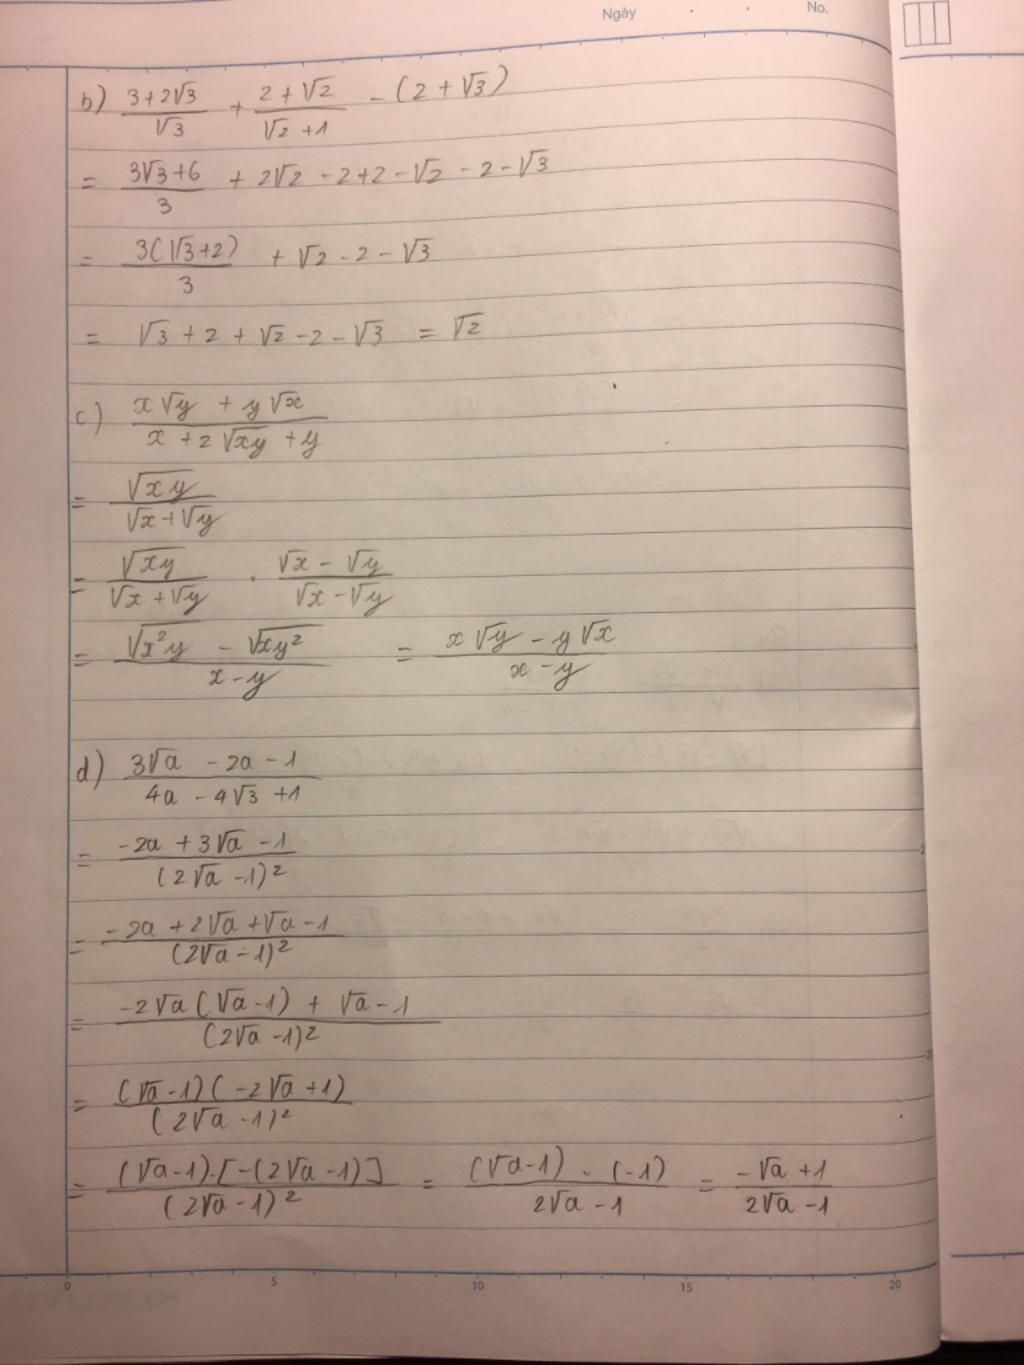 Ngày No.
b) (3+2√3)/√3 + (2+√2)/(√2+1) - (2+√3)
= (3√3+6)/3 + 2√2 -2+2-√2 -2-√3
= 3(√3+2)/3 + √2-2-√3
= √3+2+√2-2-√3 = √2
c) (x√y + y√x)/(x+2√xy+y)
= √xy/(√x+√y)
= √xy/(√x+√y) · (√x-√y)/(√x-√y)
= (√x²y - √xy²)/(x-y) = (x√y-y√x)/(x-y)
d) (3√a -2a-1)/(4a-4√3+1)
= (-2a+3√a-1)/(2√a-1)²
= (-2a+2√a+√a-1)/(2√a-1)²
= (-2√a(√a-1)+√a-1)/(2√a-1)²
= (√a-1)(-2√a+1)/(2√a-1)²
= (√a-1).[-(2√a-1)]/(2√a-1)² = (√a-1)·(-1)/(2√a-1) = (-√a+1)/(2√a-1)
0 5 10 15 20